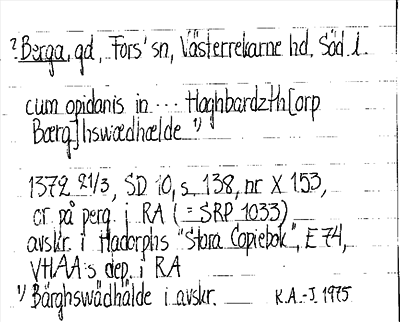 ? Berga, gd, Fors' sn, Västerrekarne hd, Söd. l.
cum opidanis in ... Haghbardzth[orp
Bærg]hswædhælde 1)
1372 21/3, SD 10, s 138, nr X 153,
or på perg. i RA (= SRP 1033)
avskr. i Hadorphs "Stora Copiebok", E 74,
VHAA:s dep. i RA
1) Bärghswädhälde i avskr. K.A.-J. 1975